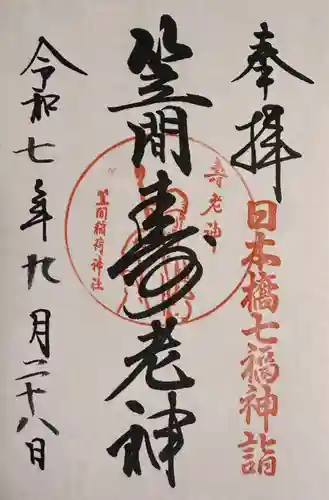 奉拝
日本橋七福神詣
笠間寿老神
寿老神
笠間稲荷神社
令和七年九月二十八日